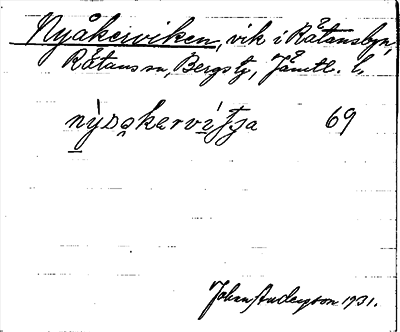 Nyåkerviken, vik i Råtansbyn,
Råtans sn, Bergs tg, Jämtl. l.
69
Johan Anderzon 1931.